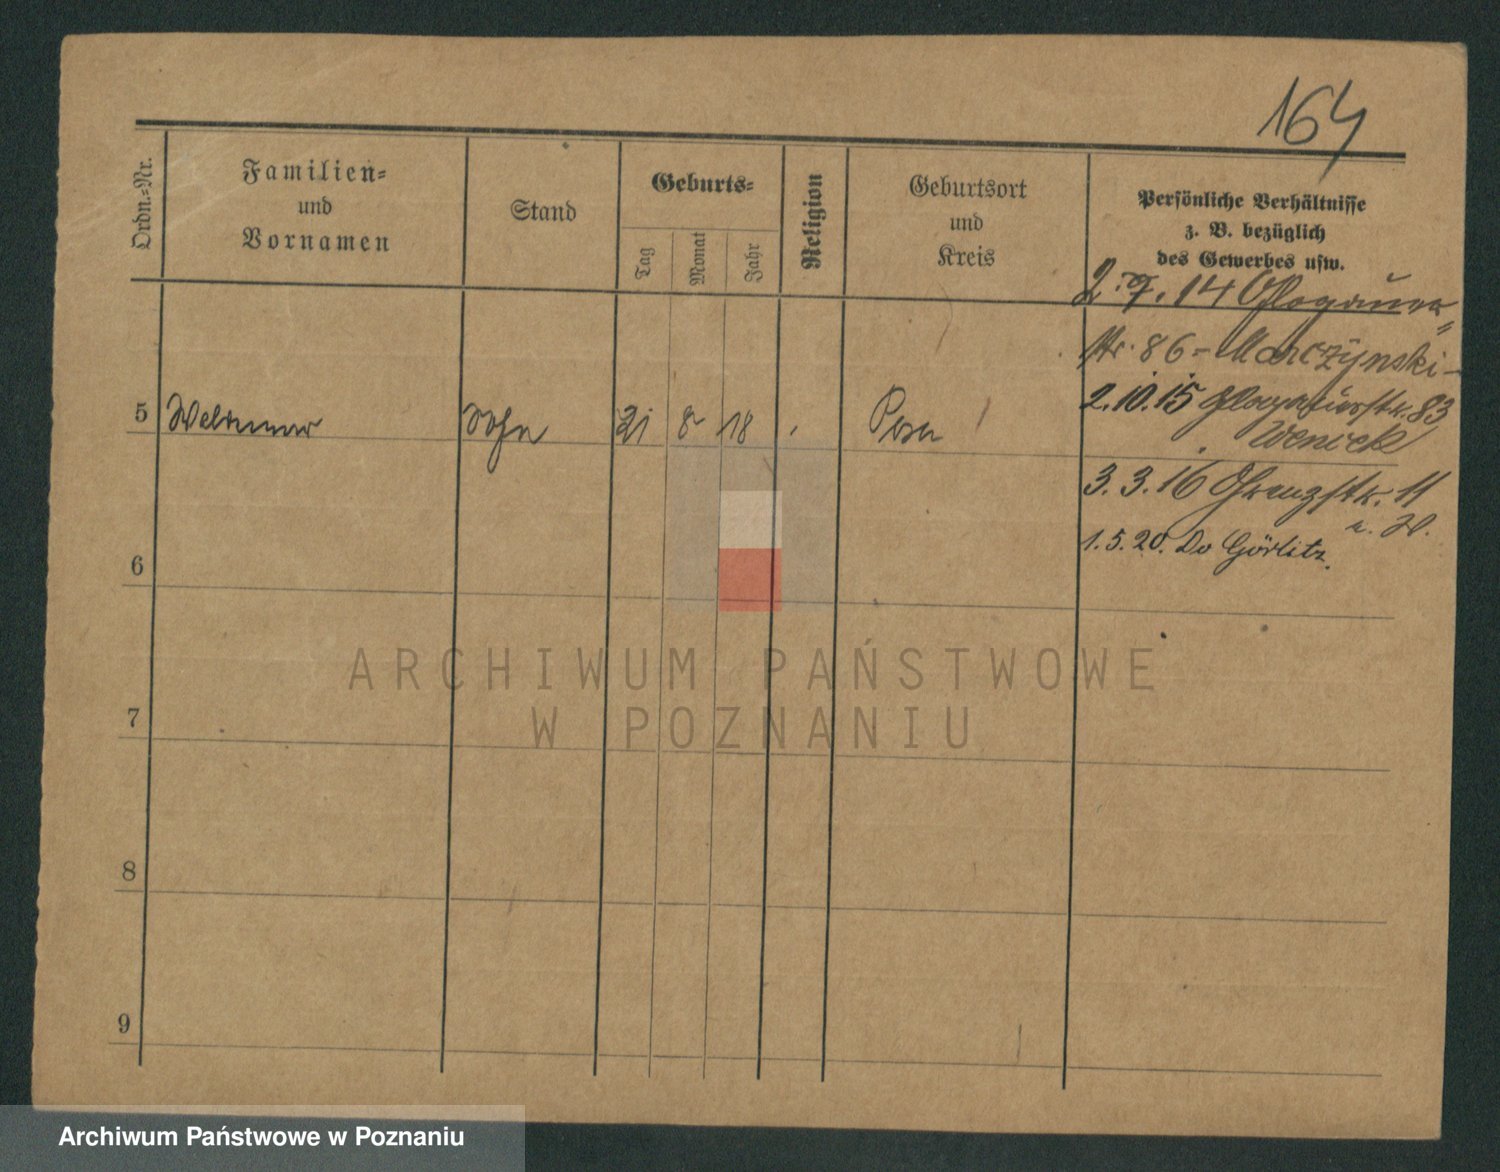 164
Ordn.-Nr.
Familien-
und
Vornamen
Stand
Geburts-
Tag
Monat
Jahr
Religion
Geburtsort
und
Kreis
Persönliche Verhältnisse
z. B. bezüglich
des Gewerbes usw.
2. 7. 14 Glogauer
str. 86 = Marczynski -
2. 10. 15 Glogauerstr. 83
5 Waldemar Sohn 21 8 18 Posen
3. 3. 16 11
1. 5. 20. Do Görlitz.
6
7
8
9
ARCHIWUM PAŃSTWOWE
W POZNANIU
Archiwum Państwowe w Poznaniu